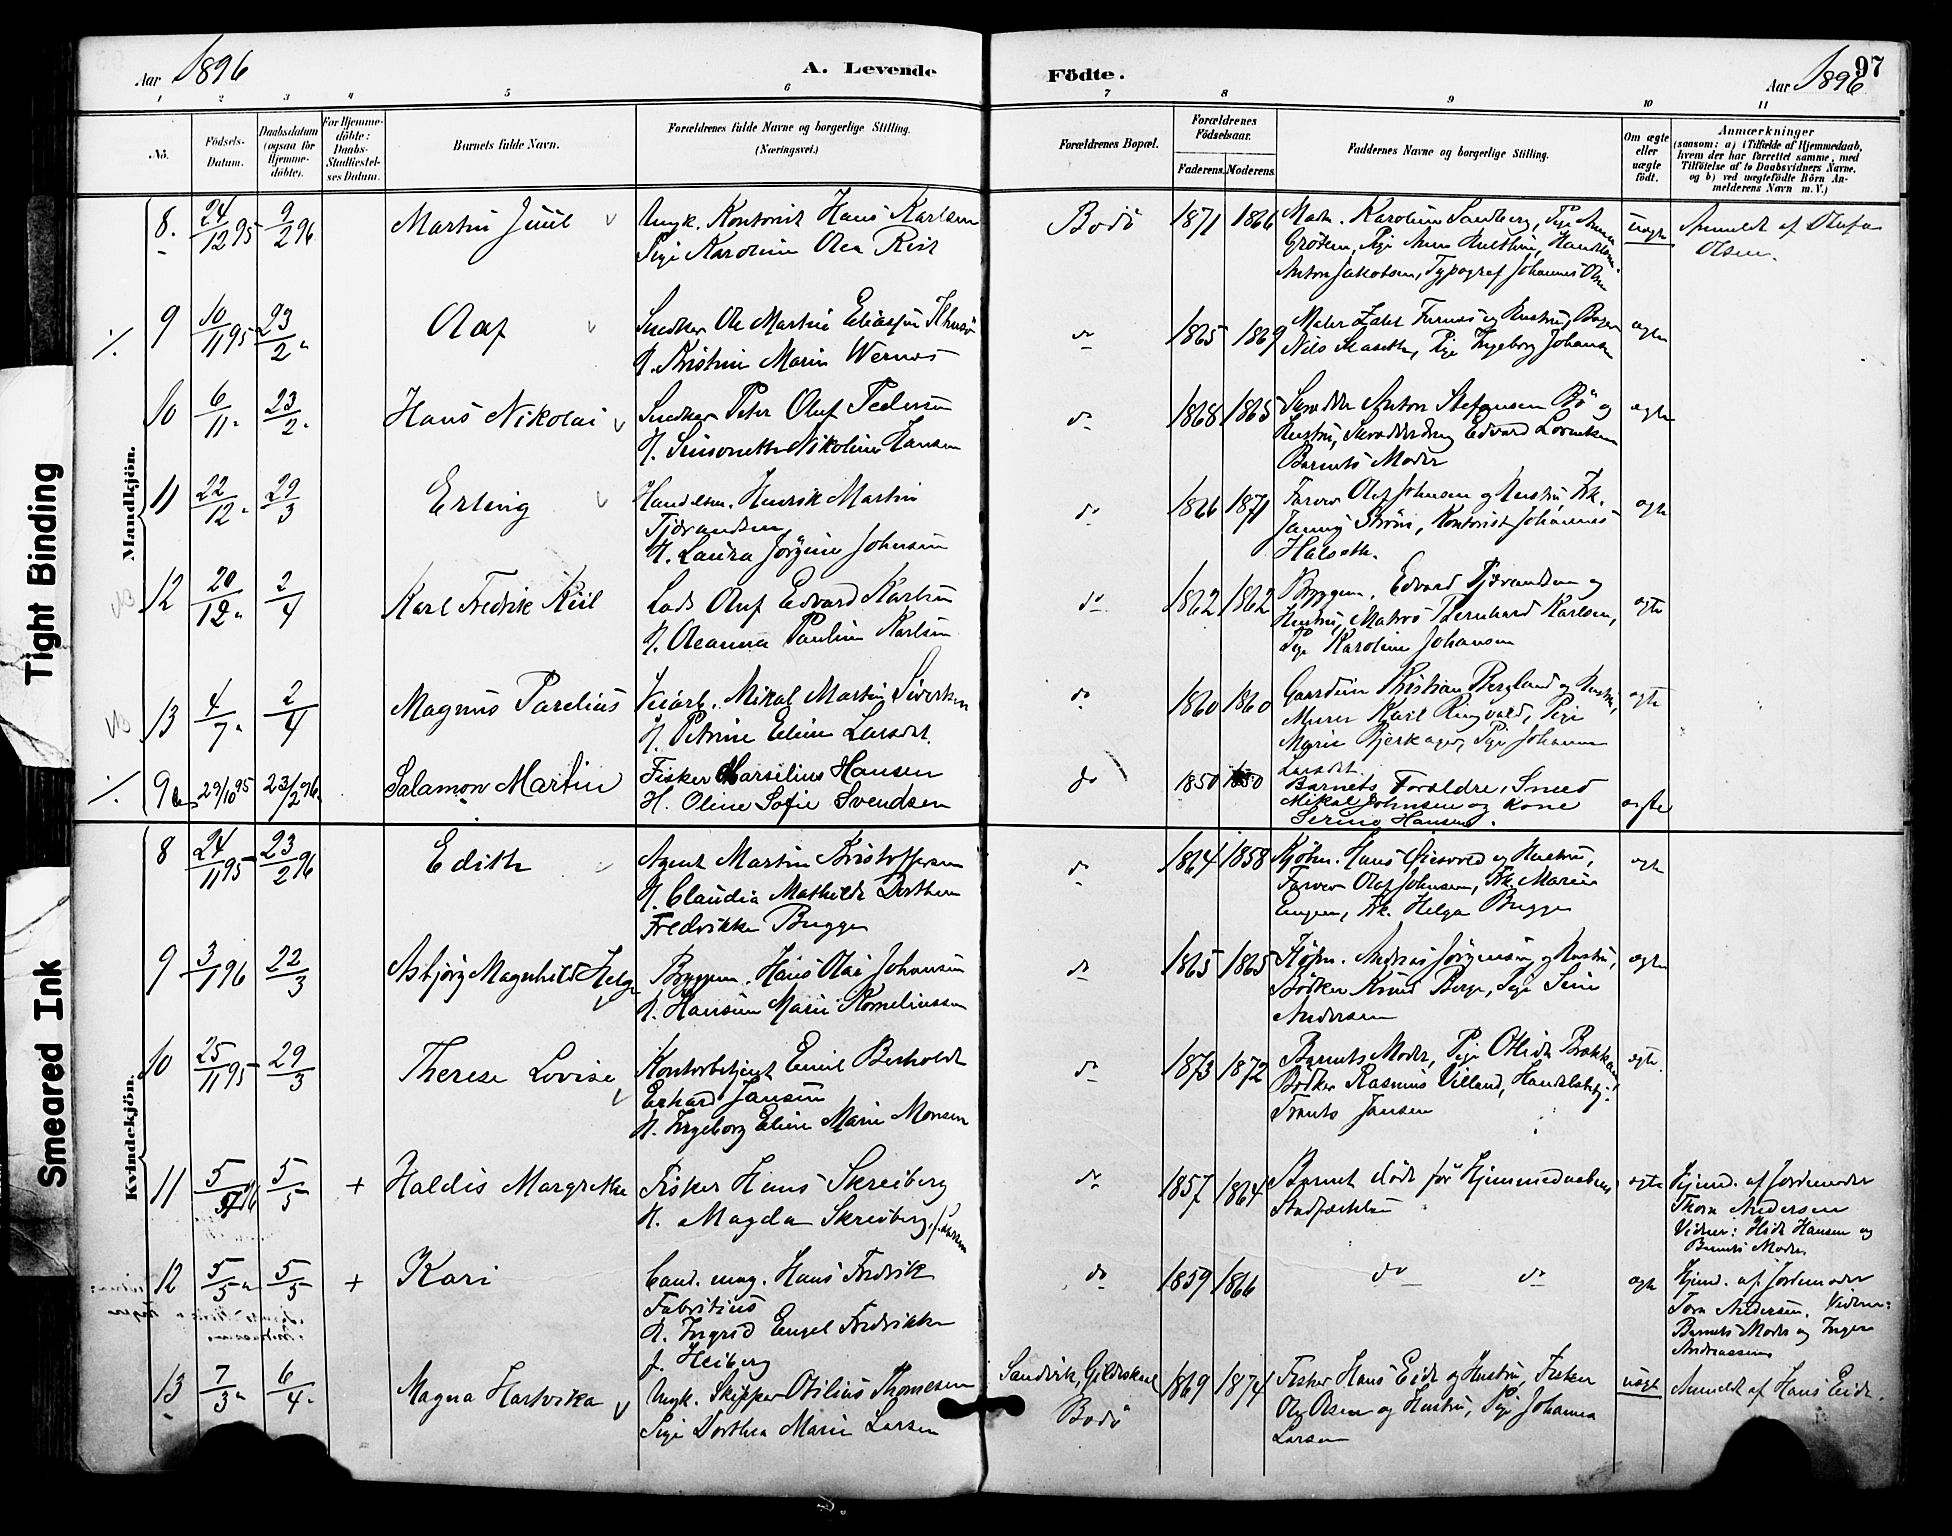 Aar 1896
A. Levende Födte.
Aar 1896
97
1 2 3 4 5 6 7 8 9 10 11
No.
Födsels-Datum.
Daabsdatum (ogsaa for Hjemme-döbte).
For Hjemme-döbte: Daabs-Stadfæstel-ses Datum.
Barnets fulde Navn.
Forældrenes fulde Navne og borgerlige Stilling.
(Næringsvei.)
Forældrenes Bopæl.
Forældrenes Födselsaar.
Faderens. Moderens.
Faddernes Navne og borgerlige Stilling.
Om ægte eller uægte födt.
Anmærkninger
(saasom: a) i Tilfælde af Hjemmedaab, hvem der har forrettet samme, med Tilföielse af to Daabsvidners Navne, og b) ved uægtefödte Börn An-melderens Navn m. V.)
Mandkjön.
8. 24/12 95 9/2 96 Martin Juul Ungk. Kontorist Hans Karlsen Bodö 1871 1866 Karoline Sandberg, Pige uægte Anmeldt af Olufa
Pige Karoline Olea Rist
Olsen.
Anton Jakobsen, Typograf Johannes Olsen
9 10/11 95 23/2 " Olaf Snedker Ole Martin Eliassen do 1865 1869 Maler Furnes og Hustru, ægte
H. Kristine Marie Wernes Nils Pige Ingeborg Johansen
10 6/11 " 23/2 " Hans Nikolai Snedker Peter Oluf Pedersen do 1868 1865 Anton Stefansen Bö og ægte
H. Simonette Nikoline Hansen Hustru, Edvard
Barnets Moder
11 22/12 " 29/3 Erling Handelsm. Henrik Martin do 1866 1871 Farver Olaf Johnsen og Hustru Frk. ægte
Tjörandsen Ström, Kontorist Johannes
H. Laura Jörgine Johnsen
12 20/12 " 2/4 Karl Fredrik Kiil Lods Oluf Edvard Karlsen do 1862 1862 Bryggem. Edvard Tjörandsen og ægte
H. Oleanna Pauline Karlsen Hustru, Matros Bernhard Karlsen,
Pige Karoline Johansen
13 4/7 " 2/4 Magnus Parelius Veiarb. Mikal Martin Sivertsen do 1860 1860 Gaardm. Kristian Bergland og Hustru, ægte
H. Petrine Eline Larsdt. Murer Karl Ringvold, Pige
Marie Pige Johanna
Larsdt.
9a 29/10 95 23/2 96. Salamon Martin Fisker Marselius Hansen do 1850 1850 Barnets Forældre, Smed ægte
H. Oline Sofie Svendsen Mikal Johnsen og Kone
Serine Hansen.
Kvindekjön.
8 24/11 95 23/2 96 Edith Agent Martin Kristoffersen do 1864 1858 Kjöbm. Hans og Hustru, ægte
H. Claudia Mathilde Dorthea Farver Olaf Johnsen, Frk. Marie
Fredrikke Bugge Engen, Frk. Helga Bugge
9 3/1 96 22/3 Asbjörg Magnhild Helga Bryggem. Hans Olai Johansen do 1865 1865 Andreas Jörgensen og Hustru, ægte
H. Hansine Marie Korneliussen Bödker Knud Berge, Pige
Andersen
10 25/11 95 29/3 Therese Lovise Kontorbetjent Emil Berholdt do 1873 1872 Barnets Moder, Pige Otilde ægte.
Erhard Jansen Bödker Rasmus Villand, Handelsbetj.
H. Ingeborg Eline Marie Monsen Jansen
11 5/3 96 5/5 + Haldis Margrethe Fisker Hans Skreiberg do 1857 1864 Barnet döde för Hjemmedaabens ægte Hjemd. af Jordemoder
H. Magda Skreiberg f. Larsen Stadfæstelse Thora Andersen
Vidner: Hansen og
Barnets Moder.
12 5/3 " 5/5 + Kari Cand. mag. Hans Fredrik do 1859 1866 do do ægte Hjemd. af Jordemoder
Fabritius Andersen. Vidner:
H. Ingrid Engel Fredrikke Barnets Moder og Inger
f. Heiberg Andreassen
13 7/3 " 6/4 " Magna Hartvika Ungk. Skipper Otilius Thomesen Sandvik, Gildeskaal 1869 1874 Fisker Hans Eide og Hustru, Fisker uægte Anmeldt af Hans Eide.
Pige Dorthea Marie Larsen Bodö Olsen og Hustru, Pige Johanna
Larsen
Tight Binding
Smeared Ink